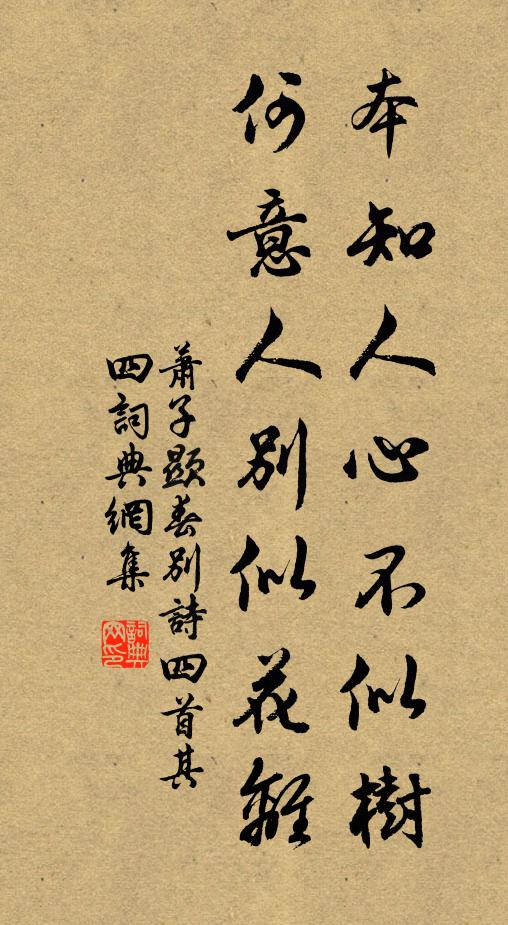 本知人心不似樹
何意人別似花離
蕭子顯春別詩四首其
四詞典網集
詞典
网印